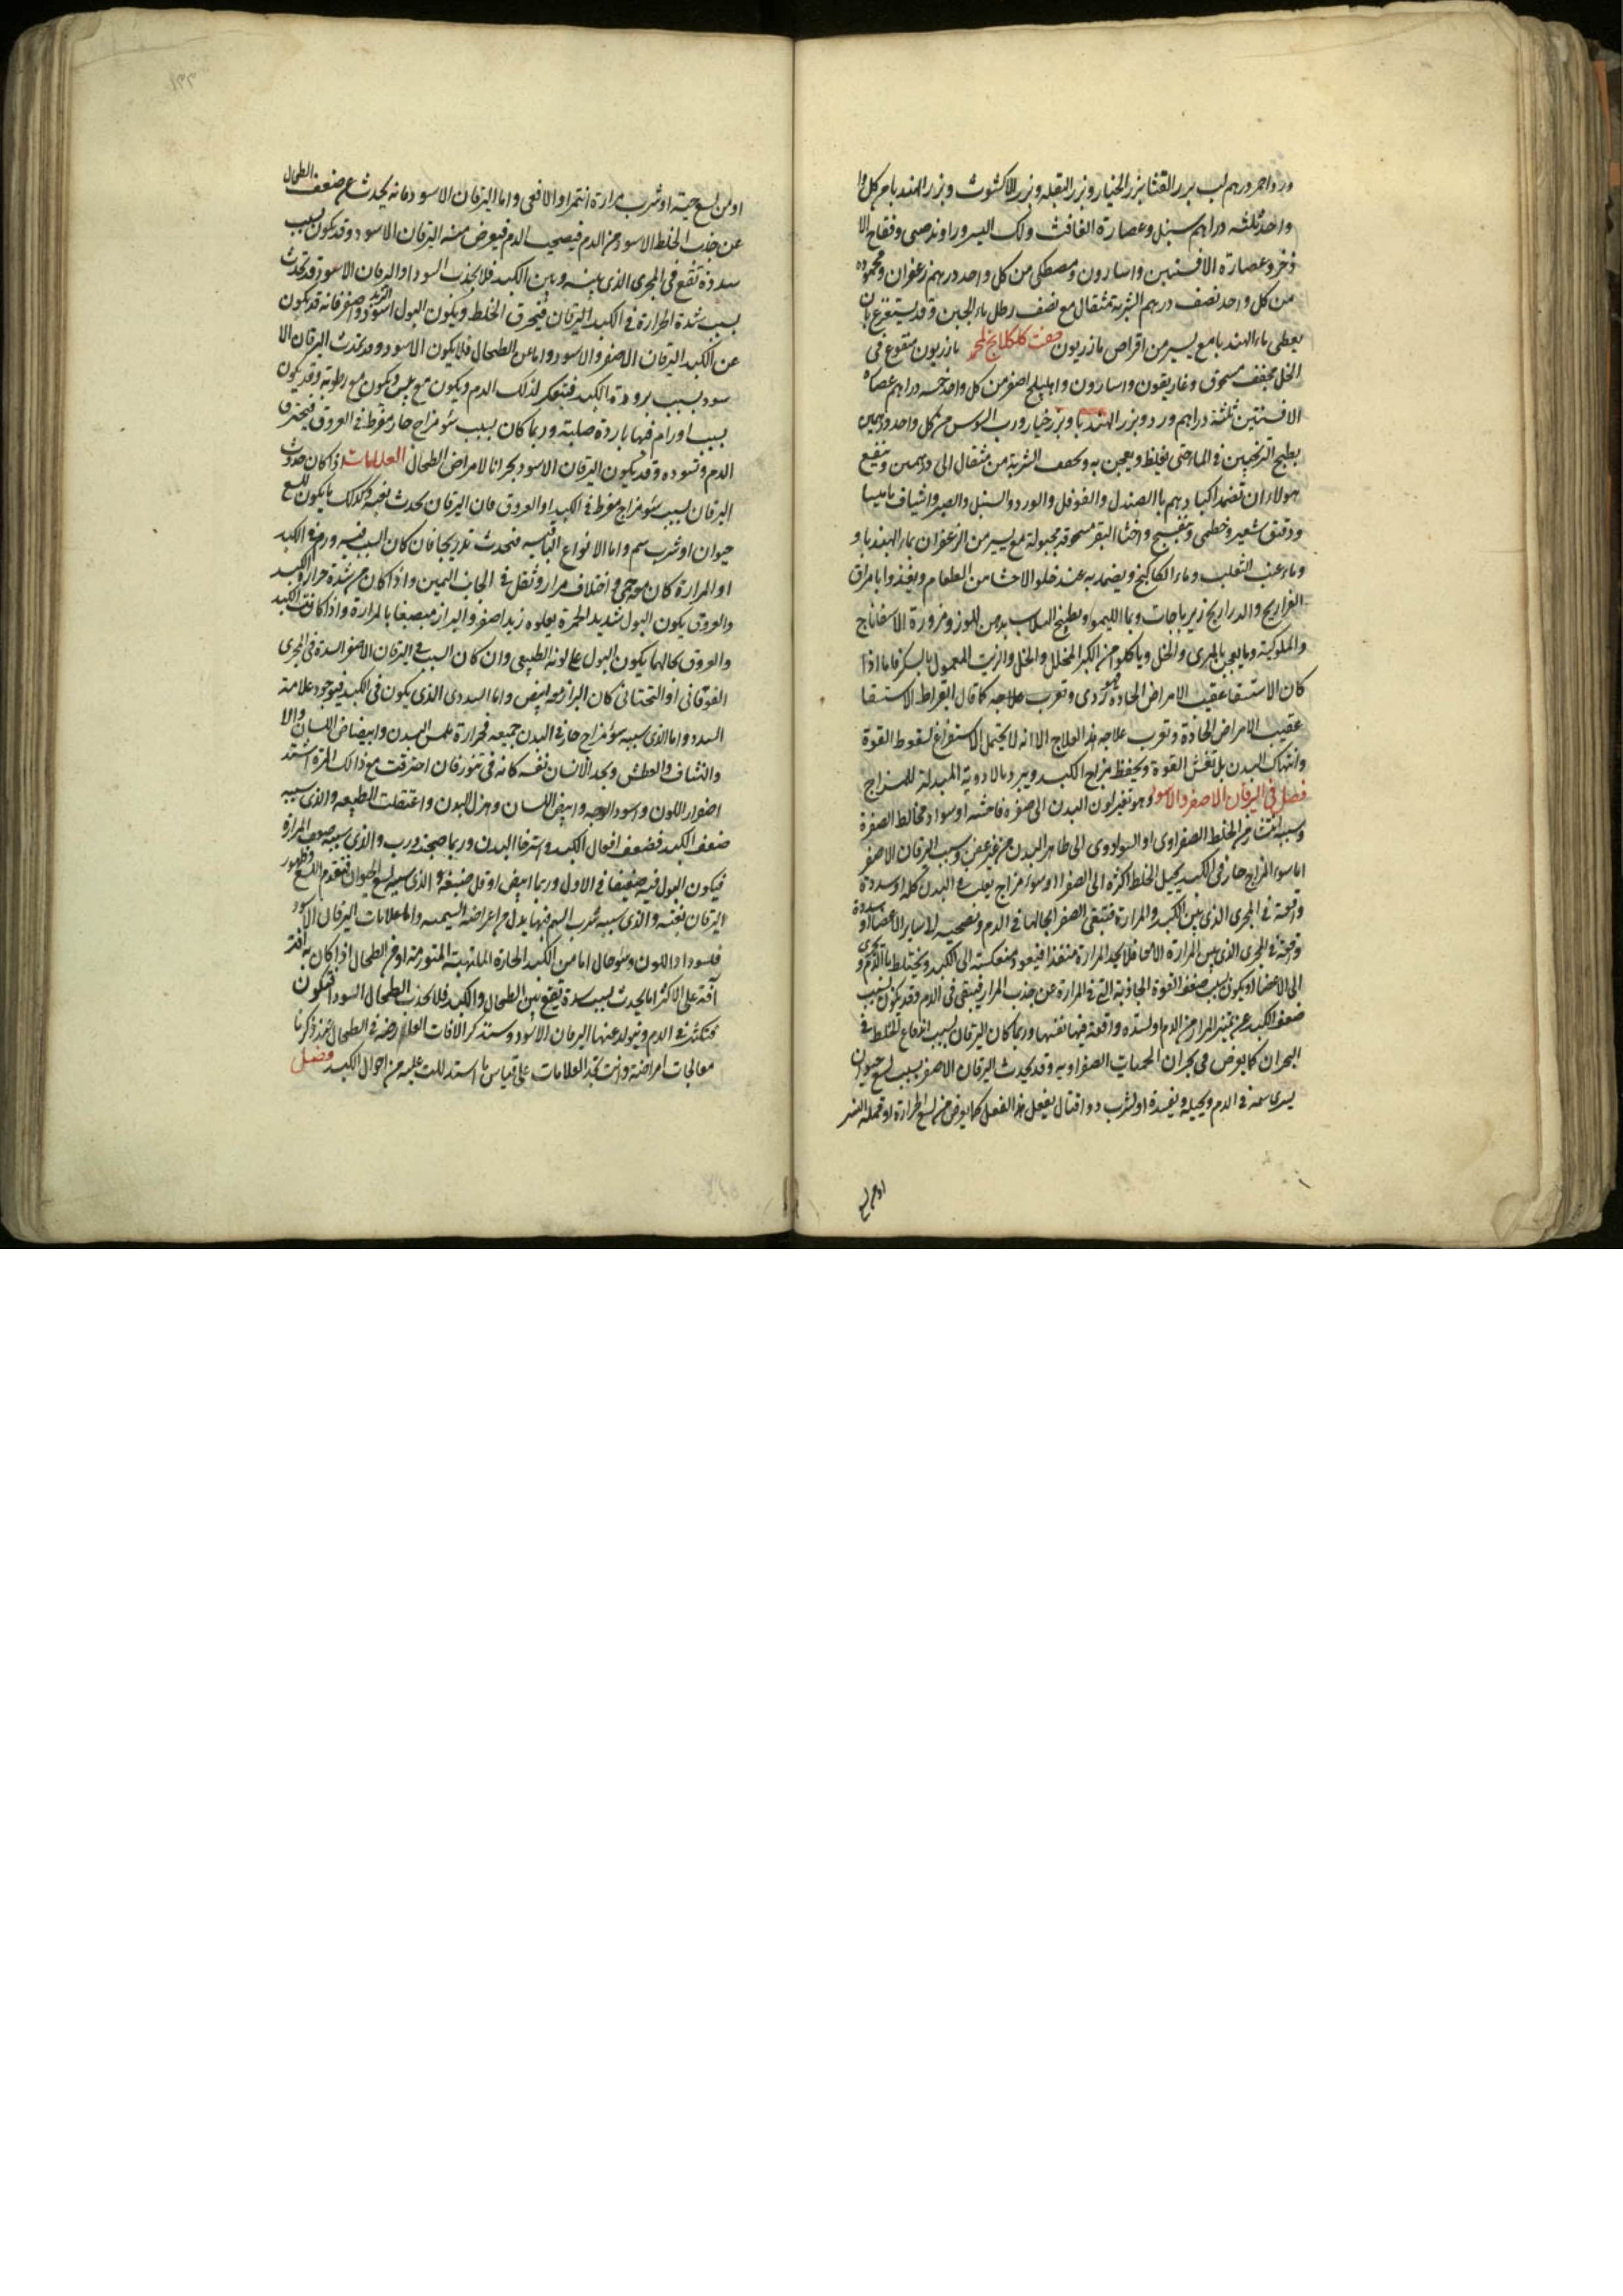 ورد واحد درهم لب بزر القثا بزر الخيار وبزر البقله وبزر الاكشوث وبزر الهندبا من كل وا
واحد ثلثه دراهم سنبل وعصارة الغافث ولك وراوند صينى وفقاح الا
ذخر وعصارة الافسنتين واسارون ومصطكى من كل واحد درهم زعفران ومحموده
من كل واحد نصف درهم الشربة مثقال مع نصف رطل ماء الجبن وقد يستفرغ بان
يعطى ماء الهندبا مع يسير من اقراص مازريون صفت كلكلانج مازريون منقوع فى
الخل مجفف مسحوق وغاريقون واسارون واهليلج اصفر من كل واحد خمسه دراهم عصاره
الافسنتين ثلثة دراهم ورد وبزر الهندبا وبزر خيار ورب السوس من كل واحد درهمين
يطبخ الترنجبين فى الماء حتى يغلظ ويعجن به ويجفف الشربة من مثقال الى درهمين وينفع
هولاء ان تضمد اكبادهم بالصندل والفوفل والورد والسنبل والصبر واشياف ماميثا
ودقيق شعير وخطمى وبنفسج واخثا البقر مسحوقه مجبولة مع يسير من الزعفران بماء الهندبا و
وماء عنب الثعلب وماء الكاكنج ويضمد به عند خلو الاحشا من الطعام ويغذوا بامراق
الفراريج والدراريج زيرباجات وبما الليمو وبطبخ بدهن اللوز ومزورة الاسفاناج
والملوكية وما يعجن بالمرى والخل وياكلوا من الكبر المخلل والخل والزيت المعمول بالسكر فاما اذا
كان الاستسقا عقيب الامراض الحاده فهو ردى وتعرب علاجه كما قال ابقراط الاستسقا
عقيب الامراض الحادة وتعرب علاجه هذا العلاج الا انه لا يحتمل الاستفراغ لسقوط القوة
وانتهاك البدن بل تنعش القوة ويحفظ مزاج الكبد ويبرد بالادوية المبدلة للمزاج
فصل فى اليرقان الاصفر والاسود وهو تغير لون البدن الى صفرة فاحشه او سواد مخالط الصفرة
وسببه انتشار من الخلط الصفراوى او السوداوى الى ظاهر البدن من غير عفن وسبب اليرقان الاصفر
اما سوء المزاج حار فى الكبد يحيل الخلط اكثره الى الصفراء او سوء مزاج يغلب فى البدن كله او سددة
واقعة فى المجرى الذى بين الكبد والمرارة فتبقى الصفرا بحالها فى الدم الى ساير الاعضاء او سددة
واقعة فى المجرى الذى بين المرارة والامعا فلا يجد المرارة منفذا فيعود منعكسته الى الكبد ويختلط بالدم ويجرى
الى الاعضا او يكون بسبب ضعف القوة الجاذبة التى فى المرارة عن جذب المرار فيبقى فى الدم وقد يكون بسبب
ضعف الكبد عن تميز المرار من الدم او لسدة واقعة فيها نفسها وربما كان اليرقان بسبب اندفاع الخلط فى
البحران كما يعرض فى بحران الحميات الصفراويه وقد يحدث اليرقان الاصفر بسبب لسع حيوان
يسرى سمه فى الدم ويحيله ويفسده او لشرب دوا قتال يفعل هذا الفعل كما يعرض من لسع الجرارة او قملة النسر
او من لسع
او من لسع حية او شرب مرارة النمر او الافعى واما اليرقان الاسود فانه يحدث عن ضعف الطحال
عن جذب الخلط الاسود من الدم فيصحب الدم فيعرض منه اليرقان الاسود وقد يكون بسبب
سددة تقع فى المجرى الذى بينه وبين الكبد فلا يجذب السودا واليرقان الاسود قد يحدث
بسبب شدة الحرارة فى الكبد اليرقان فيحرق الخلط ويكون البول اسود واصفر فانه قد يكون
عن الكبد اليرقان الاصفر والاسود واما عن الطحال فلا يكون الا سود وقد يحدث اليرقان الا
سود بسبب برودة الكبد فيتعكر لذلك الدم ويكون مع يبس ويكون مع رطوبة وقد يكون
بسبب اورام فيها باردة صلبة وربما كان بسبب سوء مزاج حار مفرط فى العروق فيحترق
الدم وتسوده وقد يكون اليرقان الاسود بحرانا لامراض الطحال العلامات اذا كان حدوث
اليرقان بسبب سوء مزاج مفرط فى الكبد او العروق فان اليرقان يحدث بغتة وكذلك ما يكون للسع
حيوان او شرب سم واما الانواع الباقيه فتحدث تدريجا فان كان السبب فيه ورم فى الكبد
او المرارة كان معه حمى واختلاف مرار وثقل فى الجانب اليمين واذا كان من شدة حرارة الكبد
والعروق يكون البول شديد الحمرة يعلوه زبد اصفر والبراز منصبغا بالمرارة واذا كانت الكبد
والعروق بحالهما يكون البول على لونه الطبيعى وان كان السبب فى اليرقان الاصفر السدة فى المجرى
الفوقانى او التحتانى كان البراز معه ابيض واما السددى الذى يكون فى الكبد فيوجد علامة
السدد واما الذى سببه سوء مزاج حار فى البدن جميعه فحرارة ملمس البدن وابيضاض اللسان والا
والنشاف والعطش ويجد الانسان نفسه كانه فى تنور فان احترقت مع ذالك المرة اشتد
اخضرار اللون واسود الوجه وابيض اللسان وهزل البدن واعتقلت الطبيعه والذى سببه
ضعف الكبد فضعف افعال الكبد واسترخا البدن وربما صحبه درب والذى سببه ضعف المرارة
فيكون البول فيه ضعيفا فى الاول وربما ابيض او قل صبغه والذى سببه لسع الحيوان فتقدم اللسع وظهور
اليرقان بغتة والذى سببه شرب السم فبها يدل من اعراضه السيمه واما علامات اليرقان الاسود
فلسودا داللون وسوء حال اما من الكبد الحارة الملتهبة المتورمة او من الطحال اذا كان به آفة
آفة على الاكثر انما يحدث بسبب سدة تقع بين الطحال والكبد فلا يجذب الطحال السودا فيكون
فتكثر فى الدم ويتولد عنها اليرقان الاسود وسنذكر الافات العارضه فى الطحال عند ذكرنا
معالجات امراضه وانت تجد العلامات على قياس ما استدللت عليه من احوال الكبد فصل